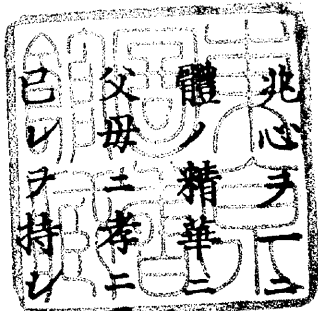 兆心ヲ一ニ
體ノ精華ニ
父母ニ孝ニ
己レヲ持シ